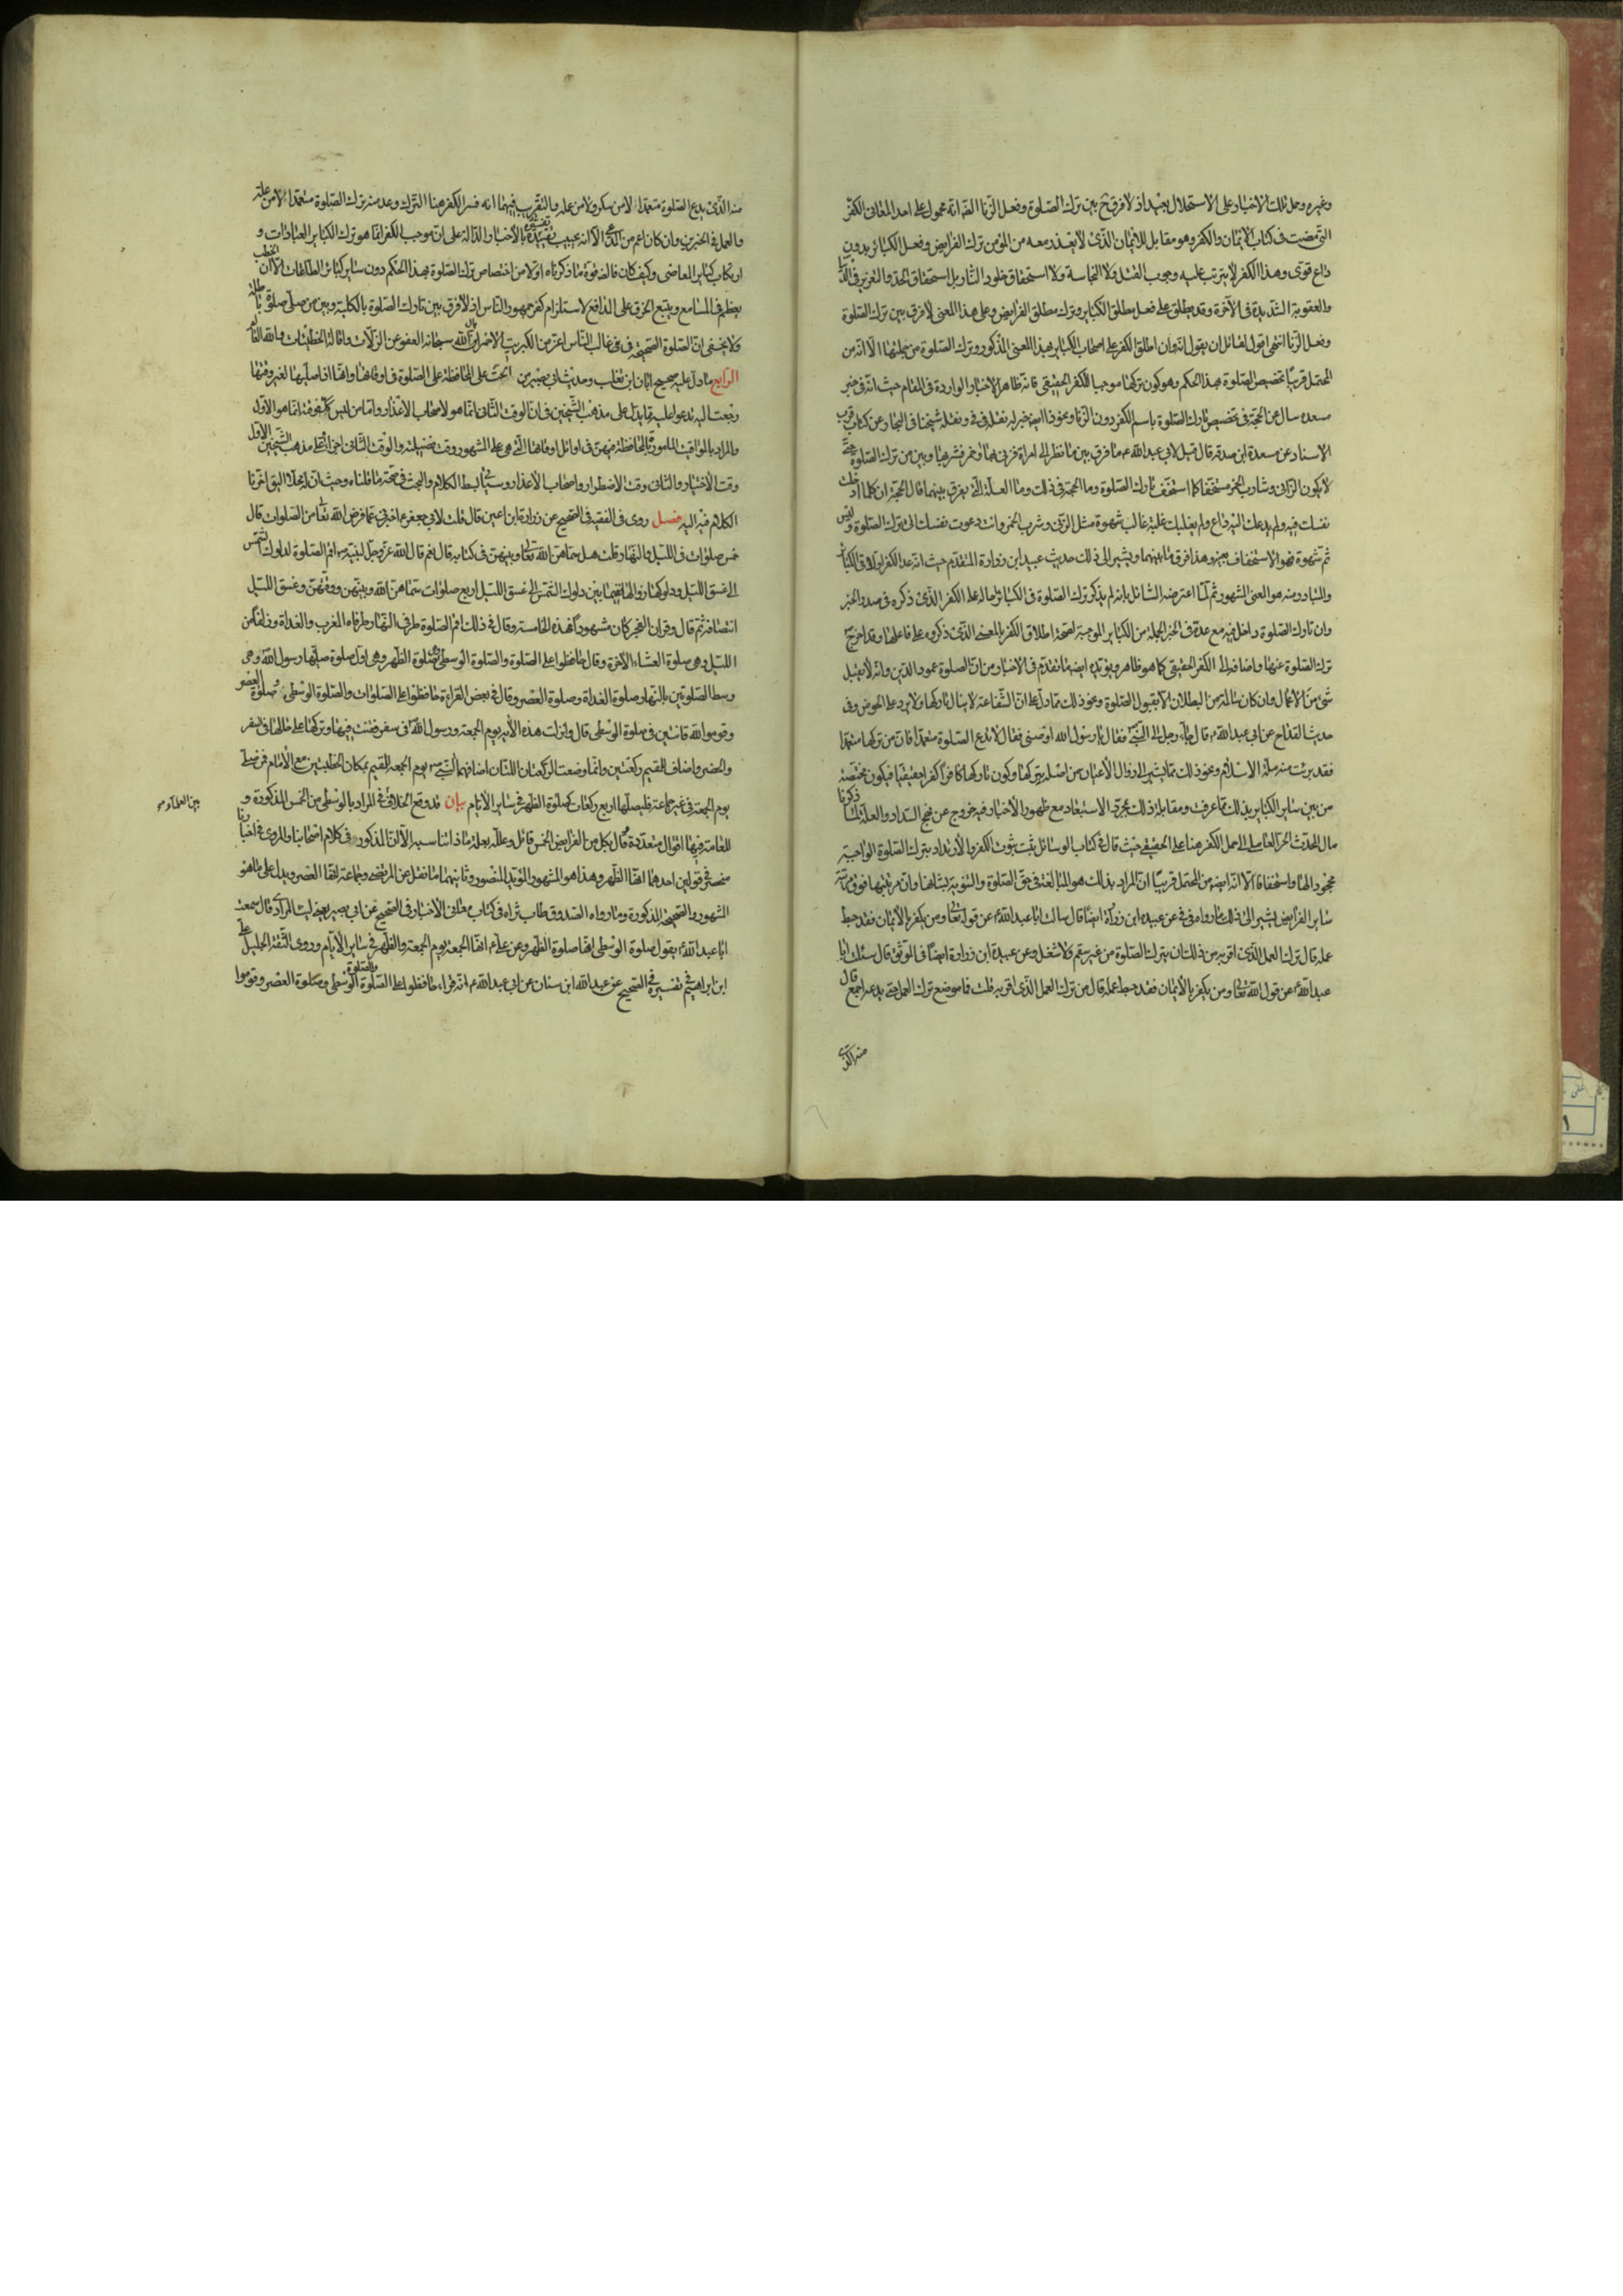 وغيره وحمل تلك الاخبار على الاستحلال بعيد اذ لا فرق ح بين ترك الصلوة وفعل الزنا الخ انه محمول على احد المعانى الكفر
التى مضيت فى كتاب الايمان والكفر وهو مقابل للايمان الذى لا يتخذ معه من المؤمن ترك الفرايض وفعل الكبائر بدون
داع قوى وهذا الكفر لا يترتب عليه وجوب القتل ولا النجاسة ولا استحقاق خلود النار بل استحقاق الحد والتعزير فى الدنيا
والعقوبة الشديدة فى الآخرة وقد يطلق على فعل مطلق الكباير وترك مطلق الفرايض وعلى هذا المعنى لا فرق بين ترك الصلوة
وفعل الزنا انتهى اقول لقائل ان يقول انه وان اطلق الكفر على اصحاب الكباير بهذا المعنى المذكور وترك الصلوة من جملتها الا انه من
المحتمل قريبا تخصيص الصلوة بهذا الحكم وهو كون تركها موجبا للكفر الحقيقى فانه ظاهر الاخبار الواردة فى المقام حيث انه فى خبر
مسعدة سال عن الحجة فى تخصيص تارك الصلوة باسم الكفر دون الزنا ونحو ذا ايضا خبر له نقله فى فى ونقله شيخنا فى البحار عن كتاب قرب
الاسناد عن مسعدة ابن صدقة قال قيل لابى عبد الله ع ما فرق بين من نظر الى امراة فزنى بها او خمر فشربها وبين من ترك الصلوة حتى
لا يكون الزانى وشارب الخمر مستخفا كما استخف تارك الصلوة وما الحجة فى ذلك وما العلة التى تفرق بينهما قال الحجة ان كلما ادخلت
نفسك فيه ولم يدعك اليه داع ولم يغلبك عليه غالب شهوة مثل الزنى وشرب الخمر وانت دعوت نفسك الى ترك الصلوة وليس
ثم شهوة فهو الاستخفاف بعينه وهذا فرق ما بينهما ويشير الى ذلك حديث عبيد ابن زرارة المتقدم حيث انه عد الكفر اولا فى الكبائر
والمتبادر منه هو المعنى المشهور ثم لما اعترضه السائل بانه لم يذكر ترك الصلوة فى الكبائر احاله على الكفر الذى ذكره فى صدر الخبر
وان تارك الصلوة داخل فيه مع عدة فى الخبر لجملة من الكباير الموجبة لصحة اطلاق الكفر بالمعنى الذى ذكروه على فاعلها وقد اخرج
ترك الصلوة عنها واضافه الى الكفر الحقيقى كما هو ظاهر ويؤيده ايضا ما تقدم فى الاخبار من ان الصلوة عمود الدين وانه لا يقبل
شئ من الاعمال وان كان سالما من البطلان الا بقبول الصلوة ونحو ذلك مما دل على ان الشفاعة لا ينال تاركها ولا يرد على الحوض وفى
حديث القداح عن ابى عبد الله ع قال جاء رجل الى النبى ص فقال يا رسول الله اوصنى فقال لا تدع الصلوة متعمدا فان من تركها متعمدا
فقد برئت منه ملة الاسلام ونحو ذلك مما يشير الى زوال الايمان من اصله بتركها وكون تاركها كافرا كفرا حقيقيا فيكون مختصة
من بين ساير الكباير بذلك لما عرفت ومقابلة ذلك بمجرد الاستبعاد مع ظهور الاخبار فيه خروج عن نهج السداد ولعله لما ذكرنا
مال المحدث الحر العاملى الى حمل الكفر هنا على الحقيقى حيث قال فى كتاب الوسائل يثبت بثبوت الكفر والارتداد بترك الصلوة الواجبة
بجحود الها واستخفافا الا انه ايضا من المحتمل قريبا ان المراد بذلك هو المبالغة فى حق الصلوة والتنويه بشانها وان مرتبتها فوق مرتبة
ساير الفرايض يشير الى ذلك ما رواه فى فى عن عبيد ابن زرارة ايضا قال سالت ابا عبد الله ع عن قوله تعالى ومن يكفر بالايمان فقد حبط
عمله قال ترك العمل الذى اقر به من ذلك ان يترك الصلوة من غير سقم ولا شغل وعن عبيد ابن زرارة ايضا فى الموثق قال سئلت ابا
عبد الله ع عن قول الله تعالى ومن يكفر بالايمان فقد حبط عمله قال من ترك العمل الذى اقر به قلت فما موضع ترك العمل حتى يدعه اجمع قال
منه الذى
منه الذى يدع الصلوة متعمدا لا من سكر ولا من علة والتقريب فيهما انه فسر الكفر هنا بالترك وعد منه ترك الصلوة متعمدا لا من علة
والعمل فى الخبرين وان كان اعم من ذلك الا انه يجب تقييده بالاخبار الدالة على ان موجب الكفر انما هو ترك الكباير العبادات و
ارتكاب كباير المعاصى وكيف كان فالقوة ما ذكرناه اولا من اختصاص ترك الصلوة بهذا الحكم دون ساير كبائر الطاعات الا ان الخطب
يعظم فى المسامع ويتسع الخرق على الراقع لاستلزام كفر جمهور الناس اذ لا فرق بين تارك الصلوة بالكلية وبين من صلى صلوة باطلة
ولا يخفى ان الصلوة الصحيحة فى غالب الناس اعز من الكبريت الاحمر نسال الله سبحانه العفو عن الزلات واقالة الخطيئات والله العالم
الرابع ما دل عليه صحيح ابان ابن تغلب وحديثا ابى بصير من الحث على المحافظة على الصلوة فى اوقاتها وانها اذا صليها لغير وقتها
رجعت اليه تدعو عليه مما يدل على مذهب الشيخين فى ان الوقت الثانى انما هو لاصحاب الاعذار واما من ليس كك فوقته انما هو الاول
والمراد بالمواقيت المامور بالمحافظة فيهن فى اوائل اوقاتها التى هى على المشهور وقت فضيلة والوقت الثانى اجزائى على مذهب الشيخين الاول
وقت الاختيار والثانى وقت الاضطرار واصحاب الاعذار وسياتى بسط الكلام والبحث فى صحة ما قلناه وحيث ان له محلا اليق اخرنا
الكلام فيه اليه فصل روى فى الفقيه فى الصحيح عن زرارة ابن اعين قال قلت لابى جعفر ع اخبرنى عما فرض الله تعالى من الصلوات قال
خمس صلوات فى الليل والنهار قلت هل سماهن الله تعالى وبينهن فى كتابه قال نعم قال الله عز وجل لنبيه ص اقم الصلوة لدلوك الشمس
الى غسق الليل ودلوكها زوالها ففيما بين دلوك الشمس الى غسق الليل اربع صلوات سماهن الله وبينهن ووقتهن وغسق الليل
انتصافه ثم قال وقران الفجر كان مشهودا فهذه الخامسة وقال فى ذلك اقم الصلوة طرفى النهار وطرفاه المغرب والغداة وزلفا من
الليل وهى صلوة العشاء الآخرة وقال حافظوا على الصلوة والصلوة الوسطى وهى صلوة الظهر وهى اول صلوة صليها رسول الله وهى
وسط الصلوتين بالنهار صلوة الغداة وصلوة العصر وقال فى بعض القراءة حافظوا على الصلوات والصلوة الوسطى وصلوة العصر
وقوموا لله قانتين فى صلوة الوسطى قال وانزلت هذه الاية يوم الجمعة ورسول الله فى سفر فقنت فيها وتركها على حالها فى السفر
والحضر واضاف للمقيم ركعتين وانما وضعت الركعتان اللتان اضافهما النبى ص يوم الجمعة للمقيم لمكان الخطبتين مع الامام فمن صلى
يوم الجمعة فى غير جماعة فليصلها اربع ركعات كصلوة الظهر فى ساير الايام بيان قد وقع الخلاف فى المراد بالوسطى من الخمس المذكورة و
بين العلماء
للعامة فيها اقوال متعددة وقال بكل من الفرايض الخمس قائل وعلله بعلة مناسبة الا ان المذكور فى كلام اصحابنا والمروى فى اخبارنا
منحصر فى قولين احدهما انها الظهر وهذا هو المشهور المؤيد المنصور وثانيهما ما نقل عن المرتضى وجماعة انها العصر ويدل على ما هو
المشهور والصحيحة المذكورة وما رواه الصدوق طاب ثراه فى كتاب معانى الاخبار فى الصحيح عن ابى بصير يعنى ليث المرادى قال سمعت
ابا عبد الله ع يقول صلوة الوسطى انها صلوة الظهر وعن على ع انها الجمعة يوم الجمعة والظهر فى ساير الايام وروى الثقة الجليل على
ابن ابراهيم فى تفسيره فى الصحيح عن عبد الله ابن سنان عن ابى عبد الله ع انه قراء حافظوا على الصلوة والصلوة الوسطى وصلوة العصر وقوموا